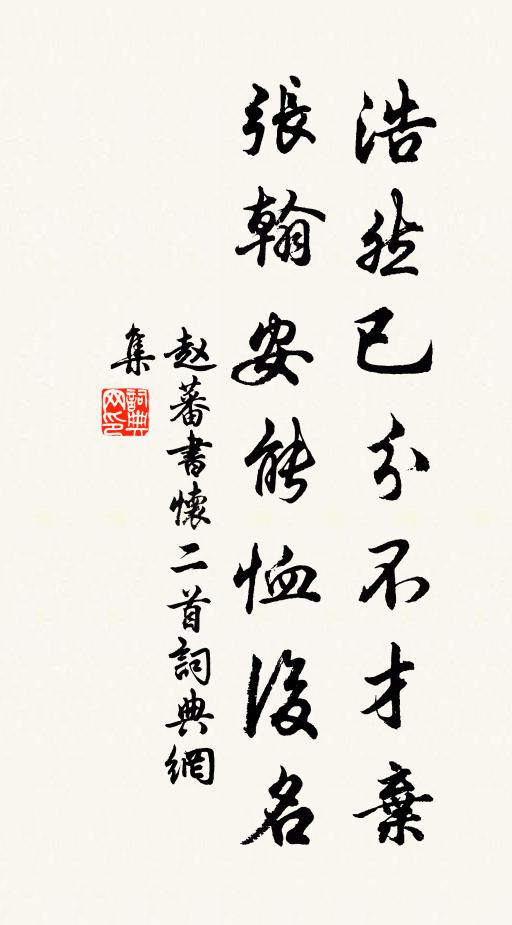 浩然已分不才棄
張翰安能恤後名
赵蕃書懷二首詞典網
集
詞典
网印